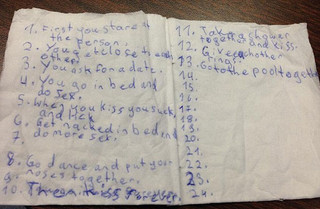 1. First you stare at
the person.
2. You get close to each
other.
3. You ask for a date.
4. You go in bed and
do sex.
5. When you kiss you suck
and lick
6. Get nacked in bed and
7. do more sex.
8. Go dance and put your
9. noses together.
10. Forever.
11. Take a shower
together and kiss.
12. Give each other
13. rings.
14. Go to the pool together
15.
16.
17.
18.
19.
20.
21.
22.
23.
24.